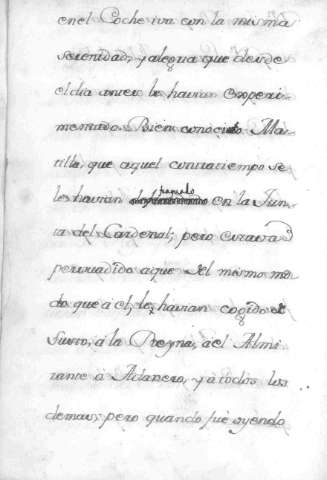 en el Coche iva con la misma
serenidad, y alegria que desde
el dia antes le havian experi-
mentado. Bien conocio Ma-
tilla, que aquel contratiempo se
les havian fraguado en la Jun-
ta del Cardenal; pero estava
persuadido a que del mismo mo-
do que a el, les havian cogido el
susto, a la Reyna, a el Almi-
rante o Adanero, y a todos los
demas; pero quando fue oyendo